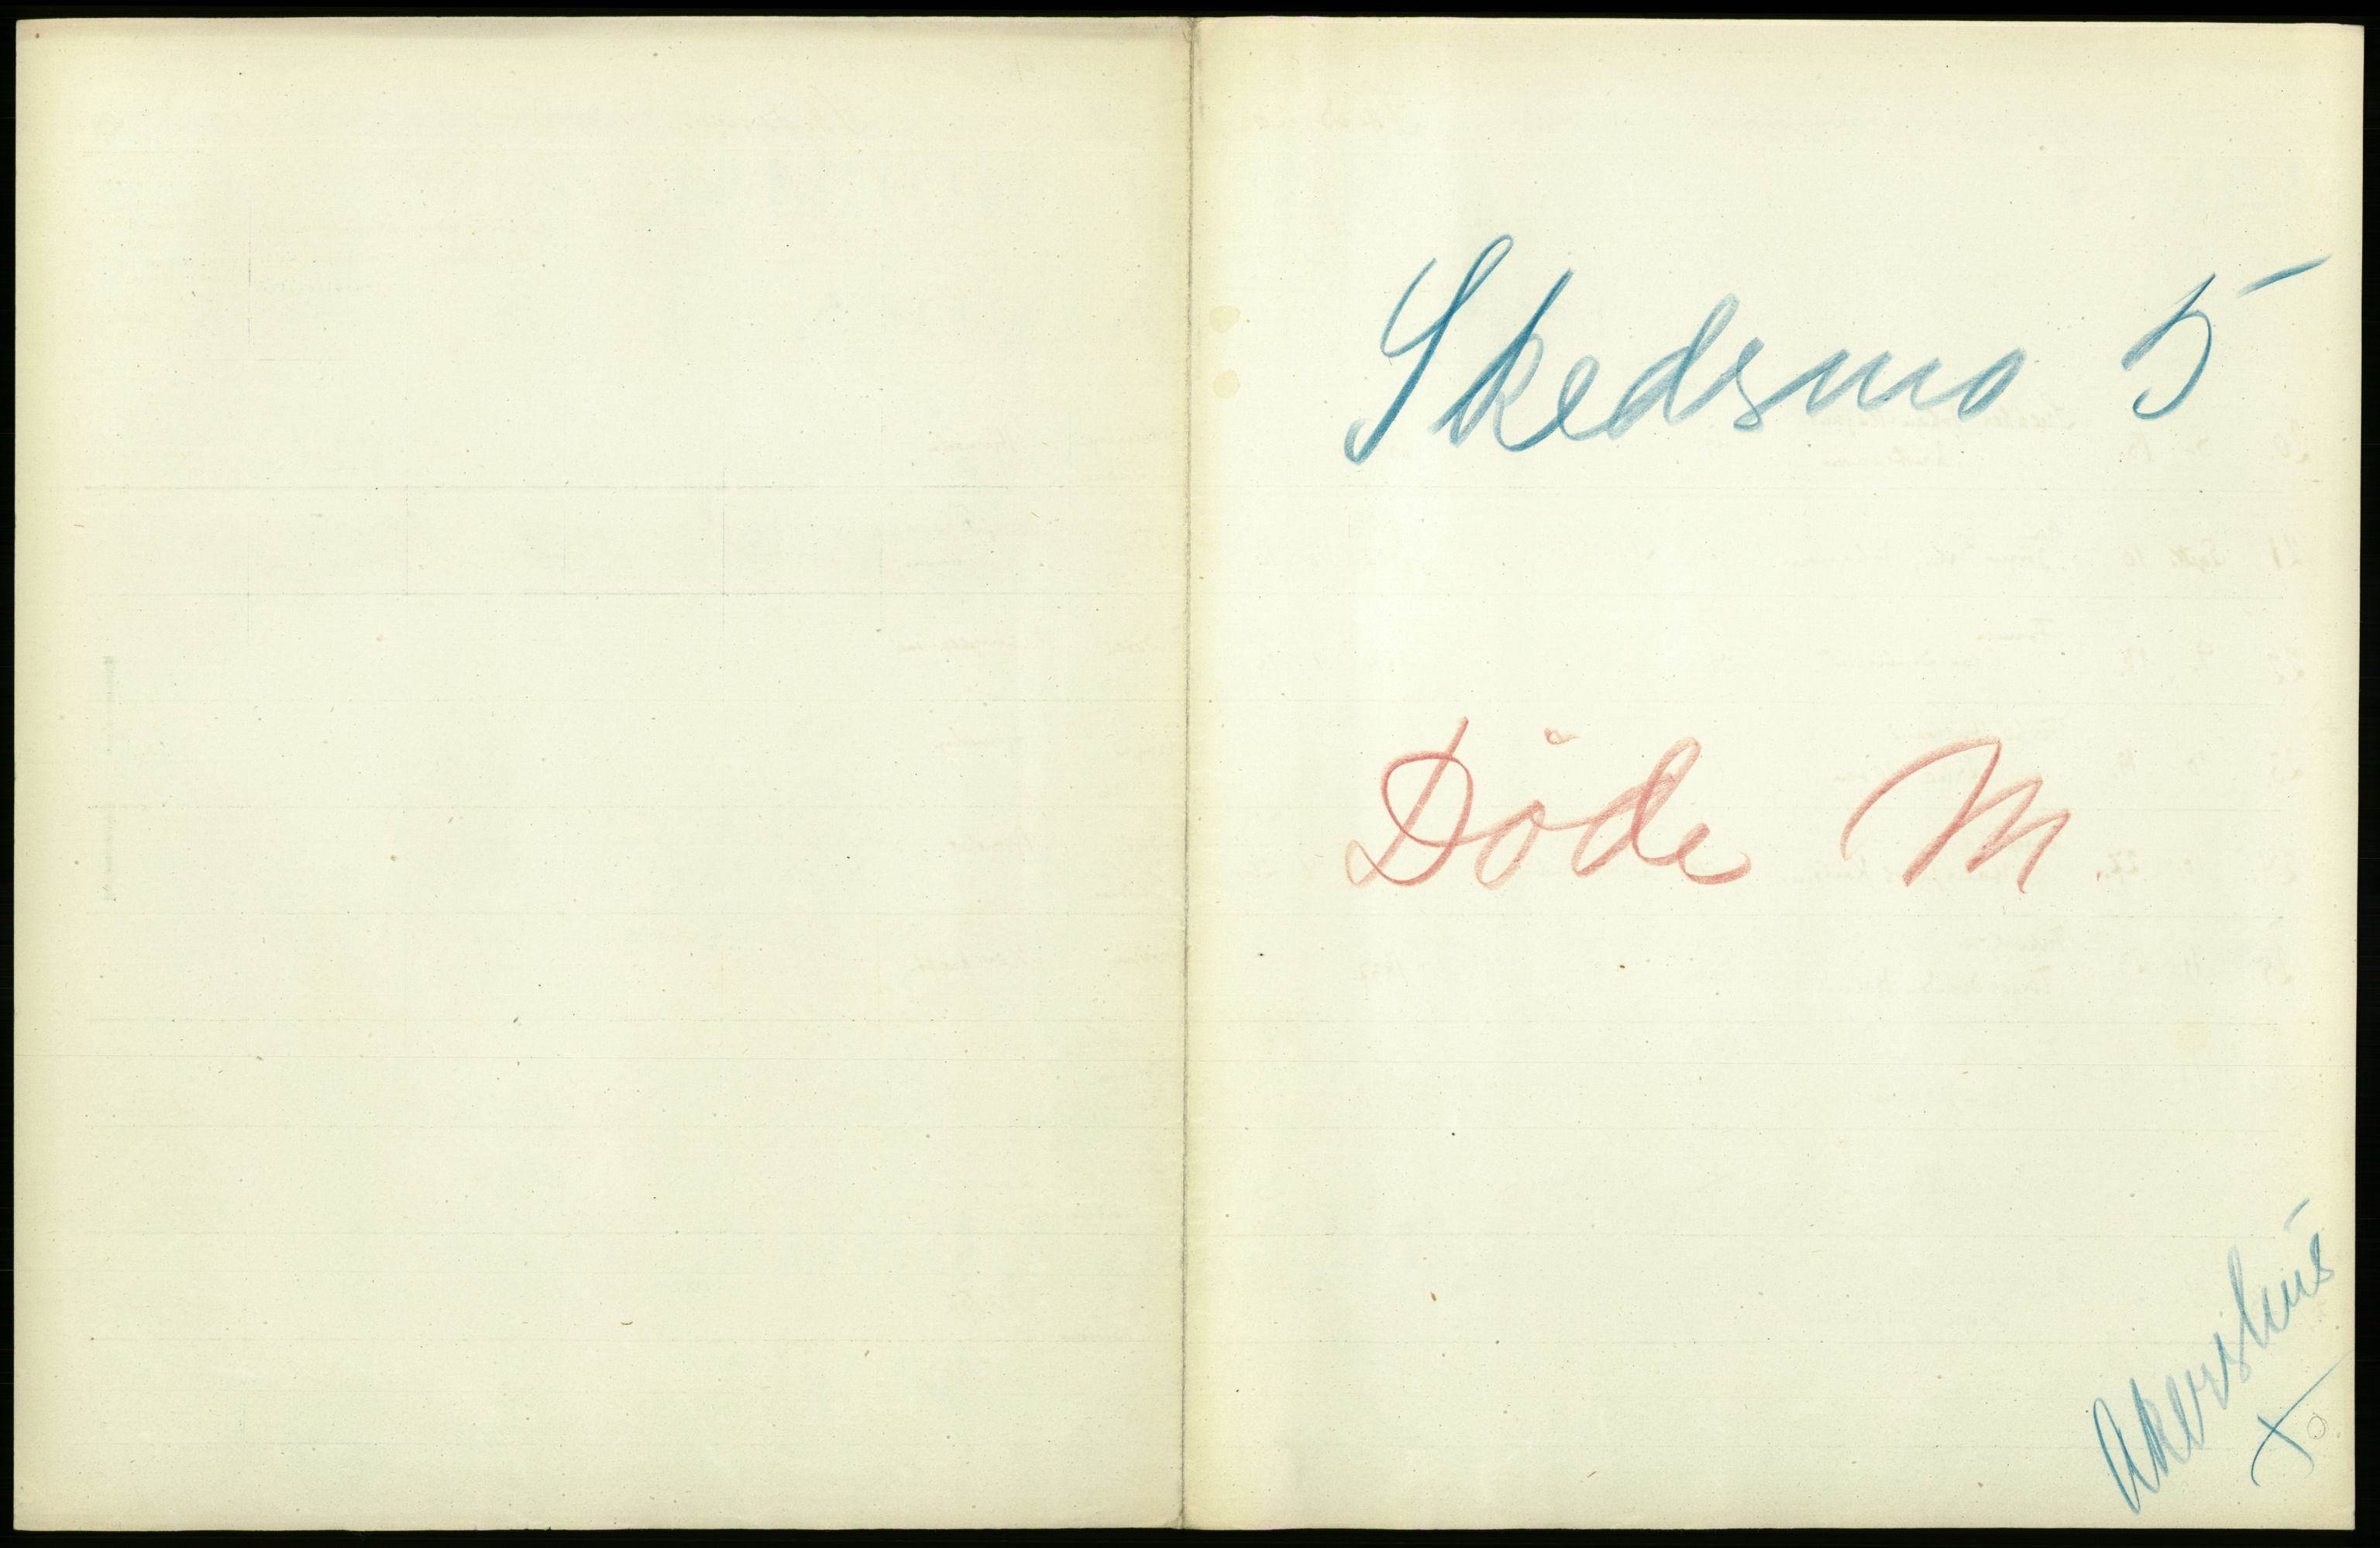 Skedsmo 5
Døde M.
Akershus